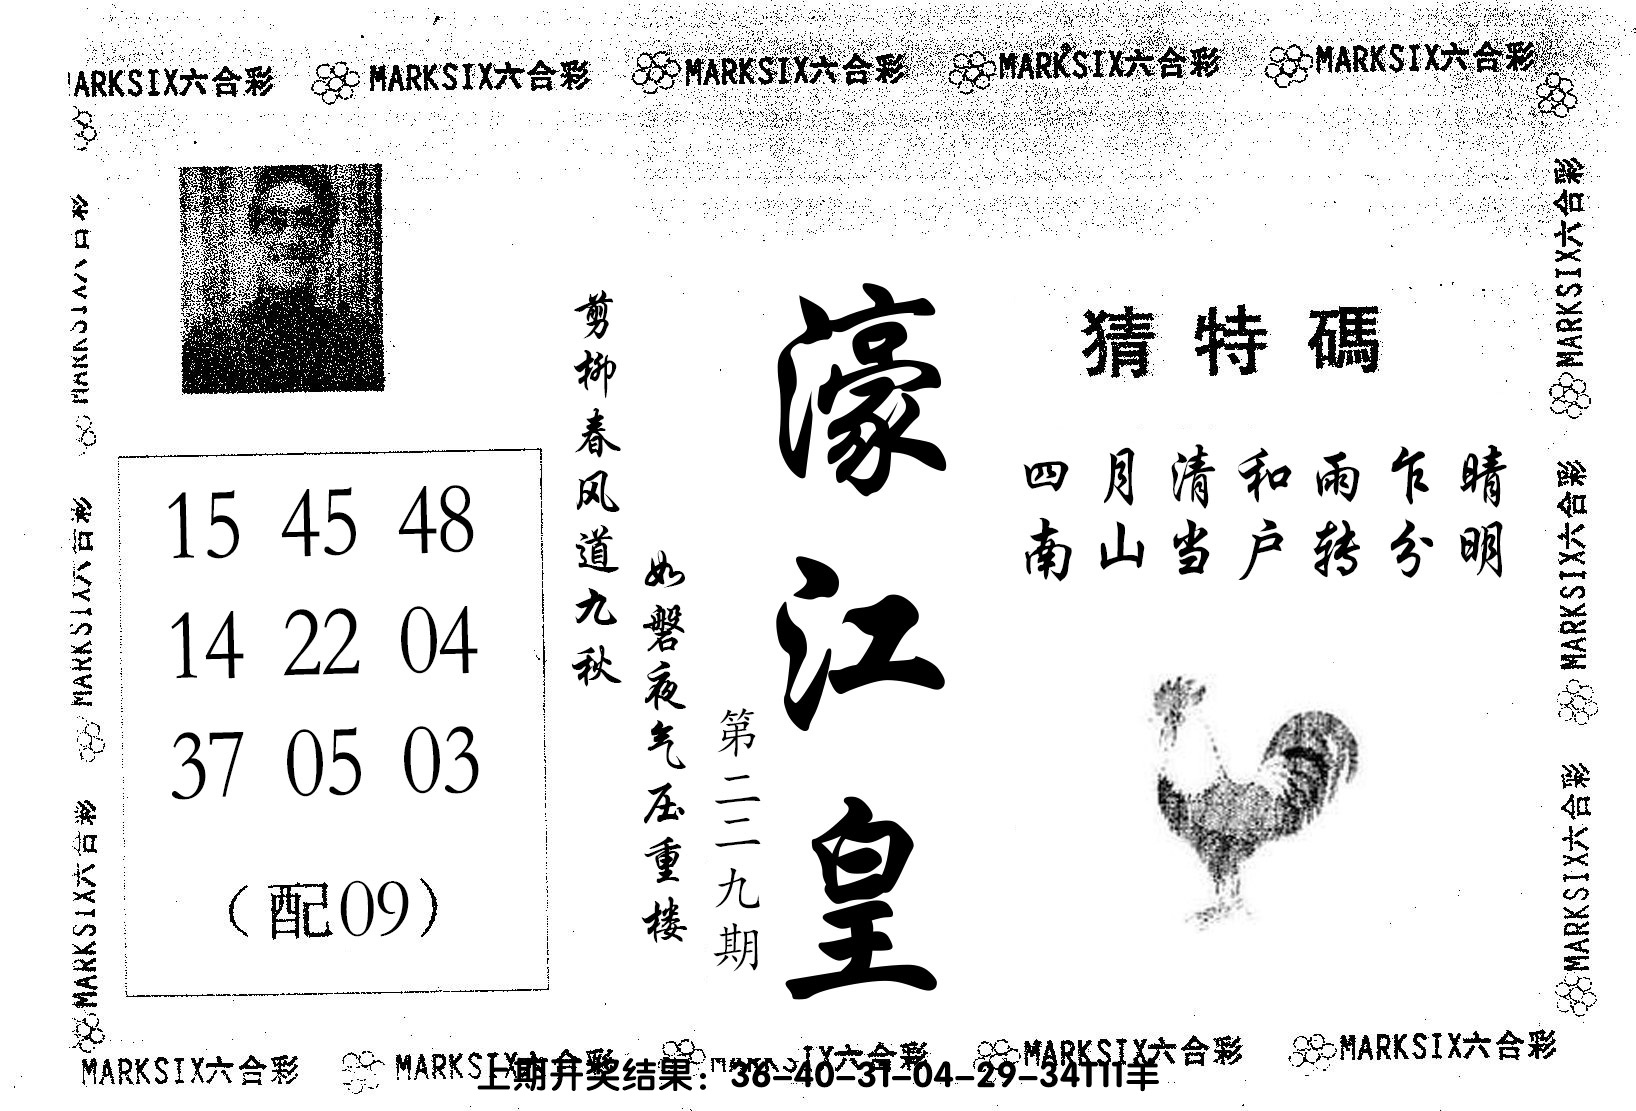 MARKSIX六合彩 MARKSIX六合彩 MARKSIX六合彩 MARKSIX六合彩
猜特碼
四月清和雨乍晴
南山当户转分明
濠江皇
第二二九期
剪柳春风道九秋
如磐夜气压重楼
15 45 48
14 22 04
37 05 03
(配09)
MARKSIX六合彩
MARKSIX六合彩
MARKSIX六合彩
MARKSIX六合彩
MARKSIX六合彩
MARKSIX六合彩 MARKSIX六合彩 MARKSIX六合彩
上期开奖结果：36-40-31-04-29-34T11羊